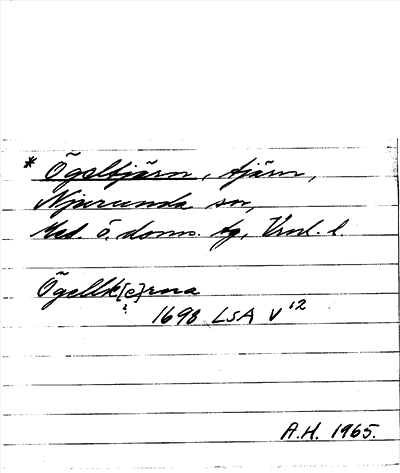 * Ögeltjärn, tjärn,
Njurunda sn,
Med. ö. doms. tg, Vnl. l.
Ögellk[e]rna
1698 LSA V 12
A.H. 1965.